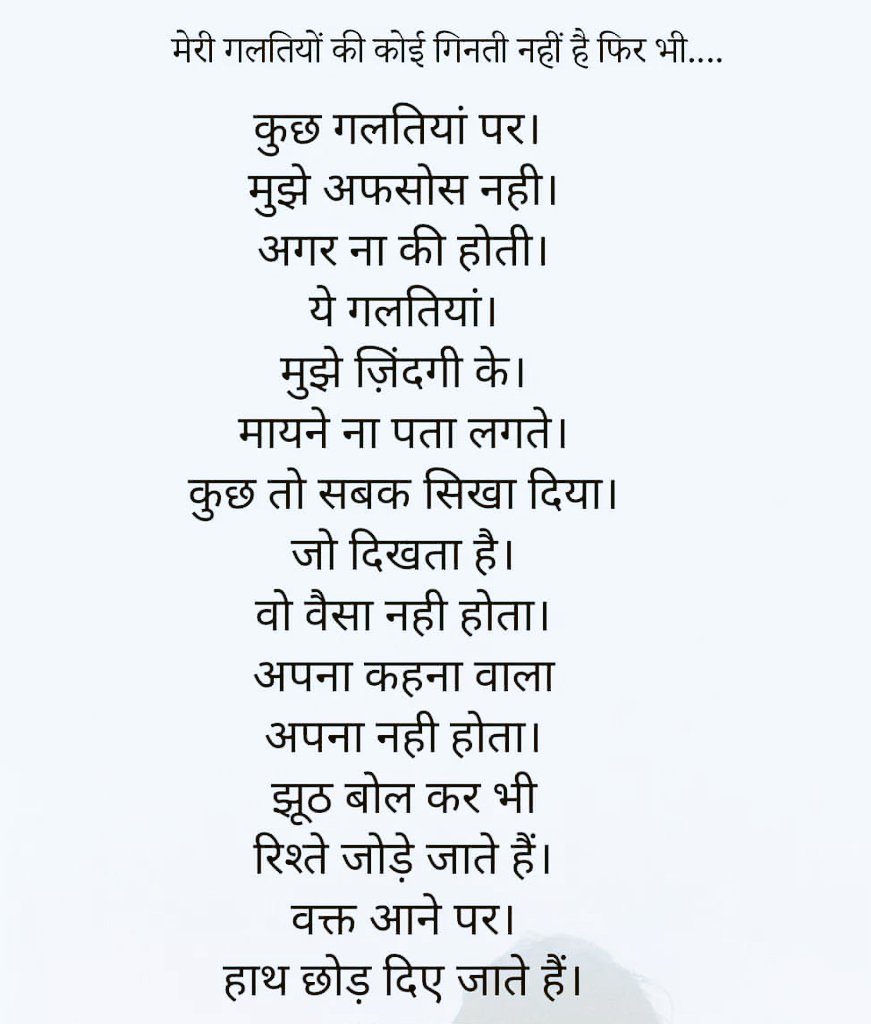 मेरी गलतियों की कोई गिनती नहीं है फिर भी....
कुछ गलतियां पर।
मुझे अफसोस नही।
अगर ना की होती।
ये गलतियां।
मुझे ज़िंदगी के।
मायने ना पता लगते।
कुछ तो सबक सिखा दिया।
जो दिखता है।
वो वैसा नही होता।
अपना कहना वाला
अपना नही होता।
झूठ बोल कर भी
रिश्ते जोड़े जाते हैं।
वक्त आने पर।
हाथ छोड़ दिए जाते हैं।